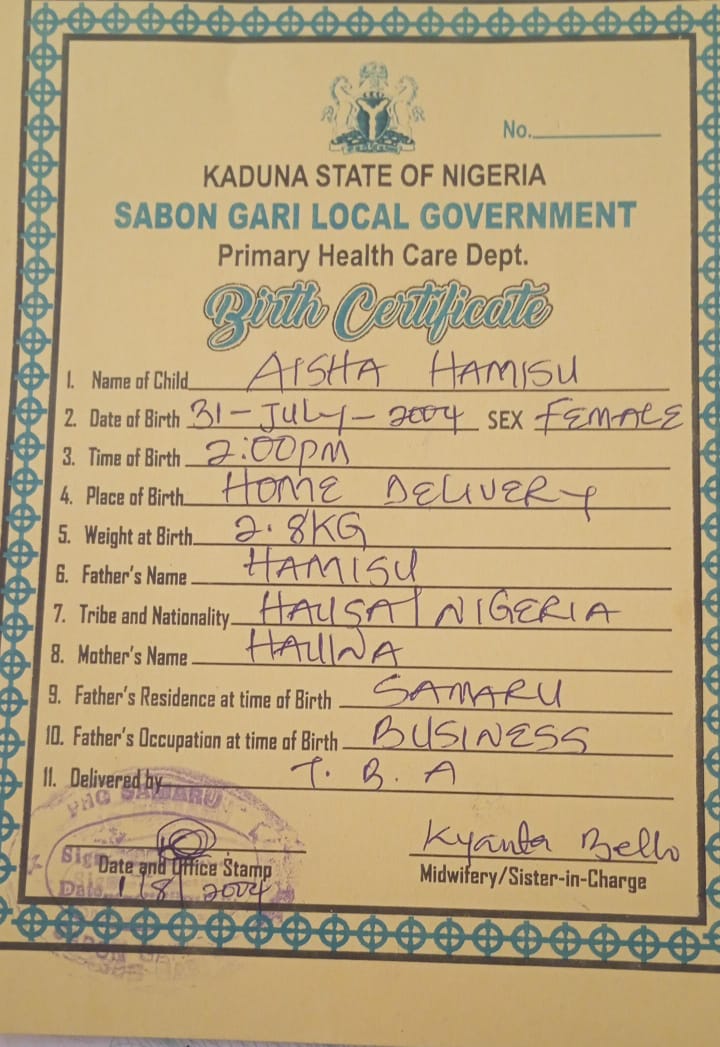 No.
KADUNA STATE OF NIGERIA
SABON GARI LOCAL GOVERNMENT
Primary Health Care Dept.
Birth Certificate
1. Name of Child AISHA HAMISU
2. Date of Birth 31-JULY-2004 SEX FEMALE
3. Time of Birth 2:00PM
4. Place of Birth HOME DELIVERY
5. Weight at Birth 2.8KG
6. Father's Name HAMISU
7. Tribe and Nationality HAUSA/NIGERIA
8. Mother's Name
9. Father's Residence at time of Birth SAMARU
10. Father's Occupation at time of Birth BUSINESS
11. Delivered by T.B.A
PHC SAMARU
Sign
Date and Office Stamp
Date 1/8/2004
Kyanta Bello
Midwifery/Sister-in-Charge